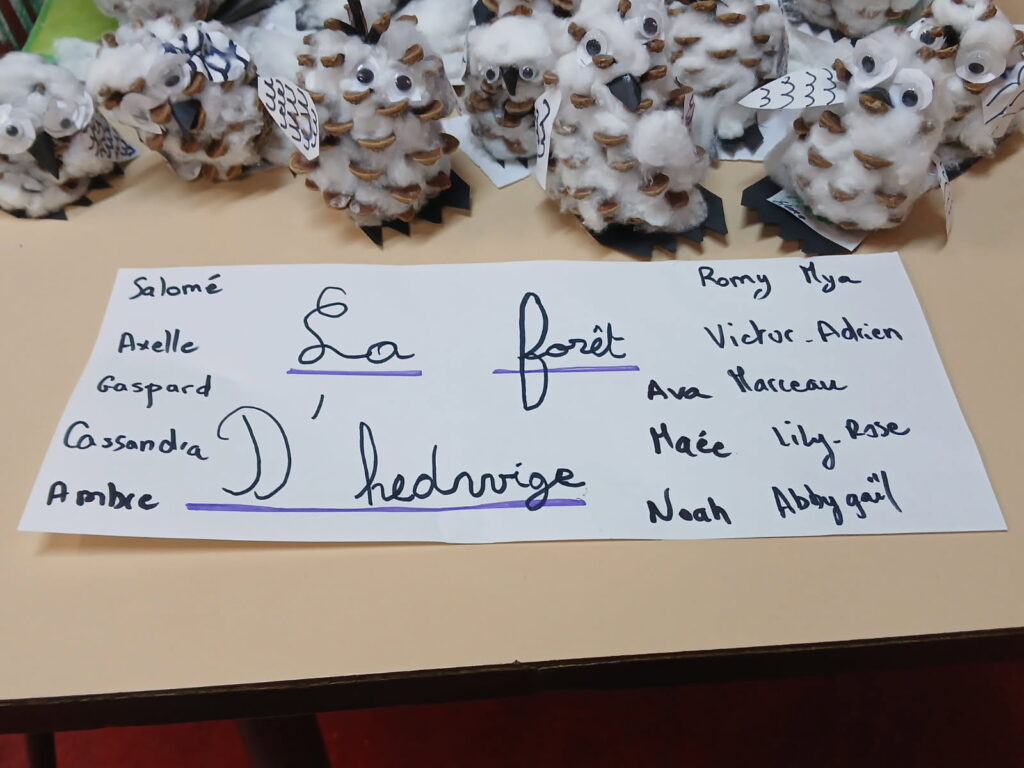 Salomé
Axelle
Gaspard
Cassandra
Ambre
La forêt
D'hedwige
Romy Mya
Victor-Adrien
Ava Marceau
Maée Lily-Rose
Noah Abbygaïl